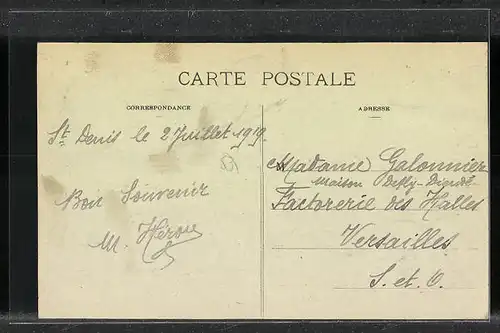 CARTE POSTALE
CORRESPONDANCE
St Denis le 2 Juillet 1919
Bon Souvenir
M. Hérou
ADRESSE
Madame Galonnier
Maison
Factorerie des Halles
Versailles
S. et. O.